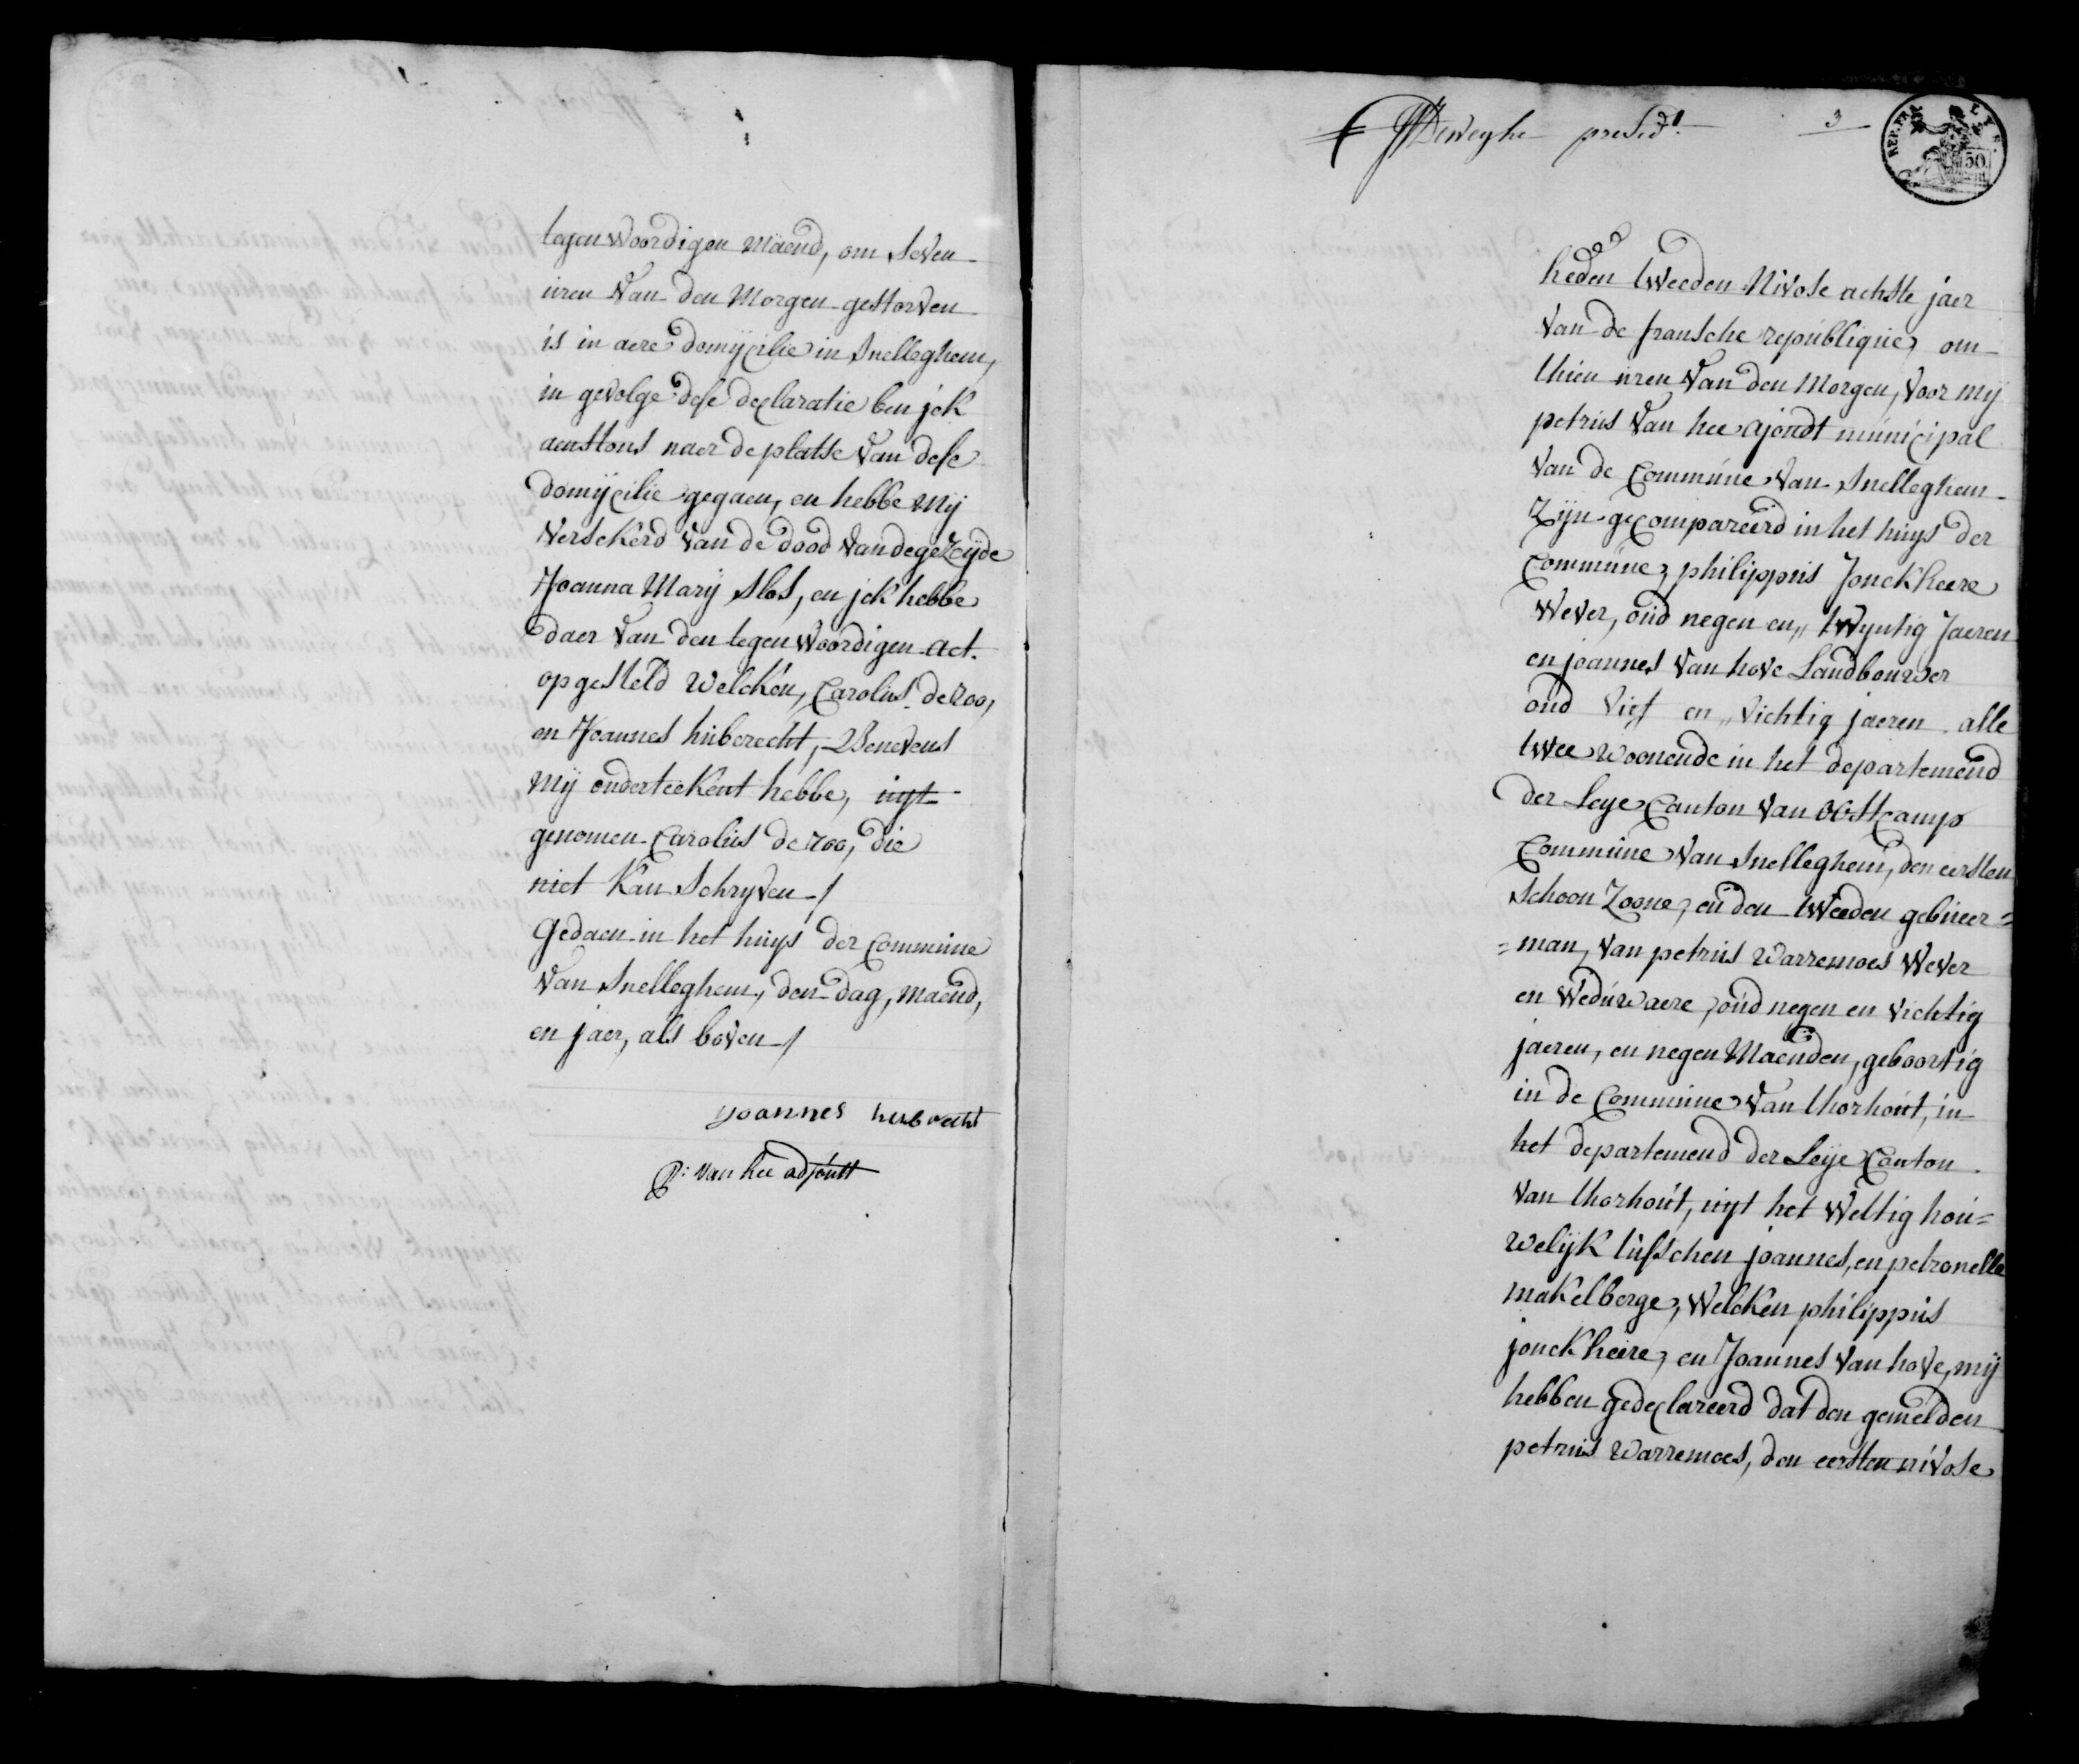 tegenwoordigen Maend, om Seven
uren Van den Morgen gestorven
is in aere domycilie in Snelleghem,
in gevolge dese declaratie ben jck
aenstons naer de platse van dese
domycilie gegaen, en hebbe Mij
Versekerd van de dood van degezeijde
Joanna Marij Slos, en jck hebbe
daer van den tegenwoordigen act.
opgesteld welcken, Carolus de roo,
en Joannes huberecht, Benevens
Mij onderteekent hebbe, uyt
genomen Carolus de roo, die
niet Kan Schryven /
Gedaen in het huys der Commune
Van Snelleghem, den dag, maend,
en jaer, als boven /
joannes hubrecht
P: van hee adjoutt
Deweghe presidt.
3
REP. FRA
LYS.
50
heden tweeden Nivose achste jaer
van de fransche republique, om
thien uren Van den Morgen, voor mij
petrus Van hee ajoudt municipal
van de Commune van Snelleghem
Zijn gecompareerd in het huys der
Commune, philippus Jonckheere
Wever, oud negen en,, twyntig Jaeren
en joannes van hove Landbouwer
oud Vief en,, Vichtig jaeren alle
twee woonende in het departemend
der Leye Canton van Oostcamp
Commune van Snelleghem, den eersten
Schoon Zoone, en den tweeden gebueer=
=man, van petrus Warremoes Wever
en Weduwaere, oud negen en vichtig
jaeren, en negen Maenden, geboortig
in de Commune Van thorhout, in
het departemend der Leije Canton
van thorhout, uyt het Wettig hou=
welijk tusschen joannes, en petronelle
makelberge, Welcken philippus
jonckheire, en Joannes van hove, mij
hebben gedeclareerd dat den gemelden
petrus Warremoes, den eersten nivose